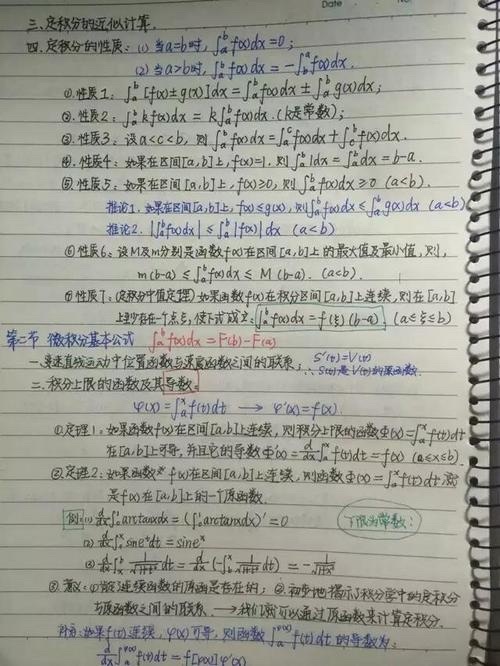 Date
三. 定积分的近似计算.
四. 定积分的性质: (1) 当a=b时, ∫_a^b f(x)dx=0;
(2) 当a>b时, ∫_a^b f(x)dx = -∫_b^a f(x)dx.
①. 性质1: ∫_a^b [f(x)±g(x)]dx=∫_a^b f(x)dx±∫_a^b g(x)dx;
②. 性质2: ∫_a^b kf(x)dx = k∫_a^b f(x)dx. (k是常数);
③. 性质3: 设a<c<b, 则∫_a^b f(x)dx=∫_a^c f(x)dx+∫_c^b f(x)dx.
④. 性质4: 如果在区间[a,b]上, f(x)=1, 则∫_a^b 1dx=∫_a^b dx=b-a.
⑤ 性质5: 如果在区间[a,b]上, f(x)≥0, 则∫_a^b f(x)dx≥0 (a<b).
推论1. 如果在区间[a,b]上, f(x)≤g(x), 则∫_a^b f(x)dx≤∫_a^b g(x)dx (a<b)
推论2. |∫_a^b f(x)dx|≤∫_a^b |f(x)|dx (a<b)
⑥ 性质6: 设M及m分别是函数f(x)在区间[a,b]上的最大值及最小值, 则,
m(b-a)≤∫_a^b f(x)dx≤ M(b-a). (a<b).
⑦ 性质7: (定积分中值定理) 如果函数f(x)在积分区间[a,b]上连续, 则在[a,b]
上至少存在一个点ξ, 使下式成立: ∫_a^b f(x)dx=f(ξ)(b-a) (a≤ξ≤b)
第二节 微积分基本公式 ∫_a^b f(x)dx=F(b)-F(a)
一. 变速直线运动中位置函数与速度函数之间的联系: S'(t)=V(t)
∴ S(t)是V(t)的原函数.
二. 积分上限的函数及其导数.
φ(x)=∫_a^x f(t)dt → φ'(x)=f(x).
①定理1: 如果函数f(x)在区间[a,b]上连续, 则积分上限的函数Φ(x)=∫_a^x f(t)dt
在[a,b]上可导, 并且它的导数Φ'(x)=d/dx∫_a^x f(t)dt=f(x) (a≤x≤b).
②定理2: 如果函数f(x)在区间[a,b]上连续, 则函数Φ(x)=∫_a^x f(t)dt
是f(x)在[a,b]上的一个原函数.
例: (1) d/dx∫ arctanxdx=(∫ arctanxdx)'=0
下限为常数:
(2) d/dx∫ sine^t dt=sine^x
③ 意义: ①肯定连续函数的原函数是存在的; ②. 初步地揭示了积分学中的定积分
与原函数之间的联系. → 我们就可以通过原函数来计算定积分.
补充: 如果f(t)连续, φ(x)可导, 则函数∫_a^φ(x) f(t)dt的导数为:
d/dx∫_a^φ(x) f(t)dt=f[φ(x)]φ'(x)